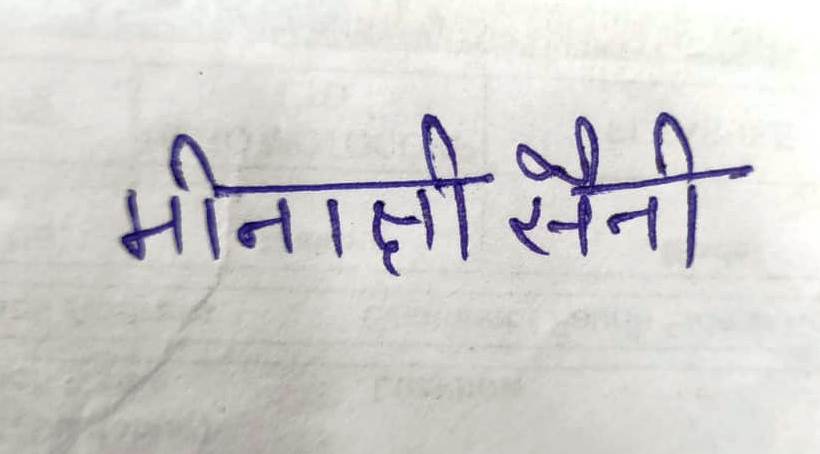 मीनाक्षी सैनी